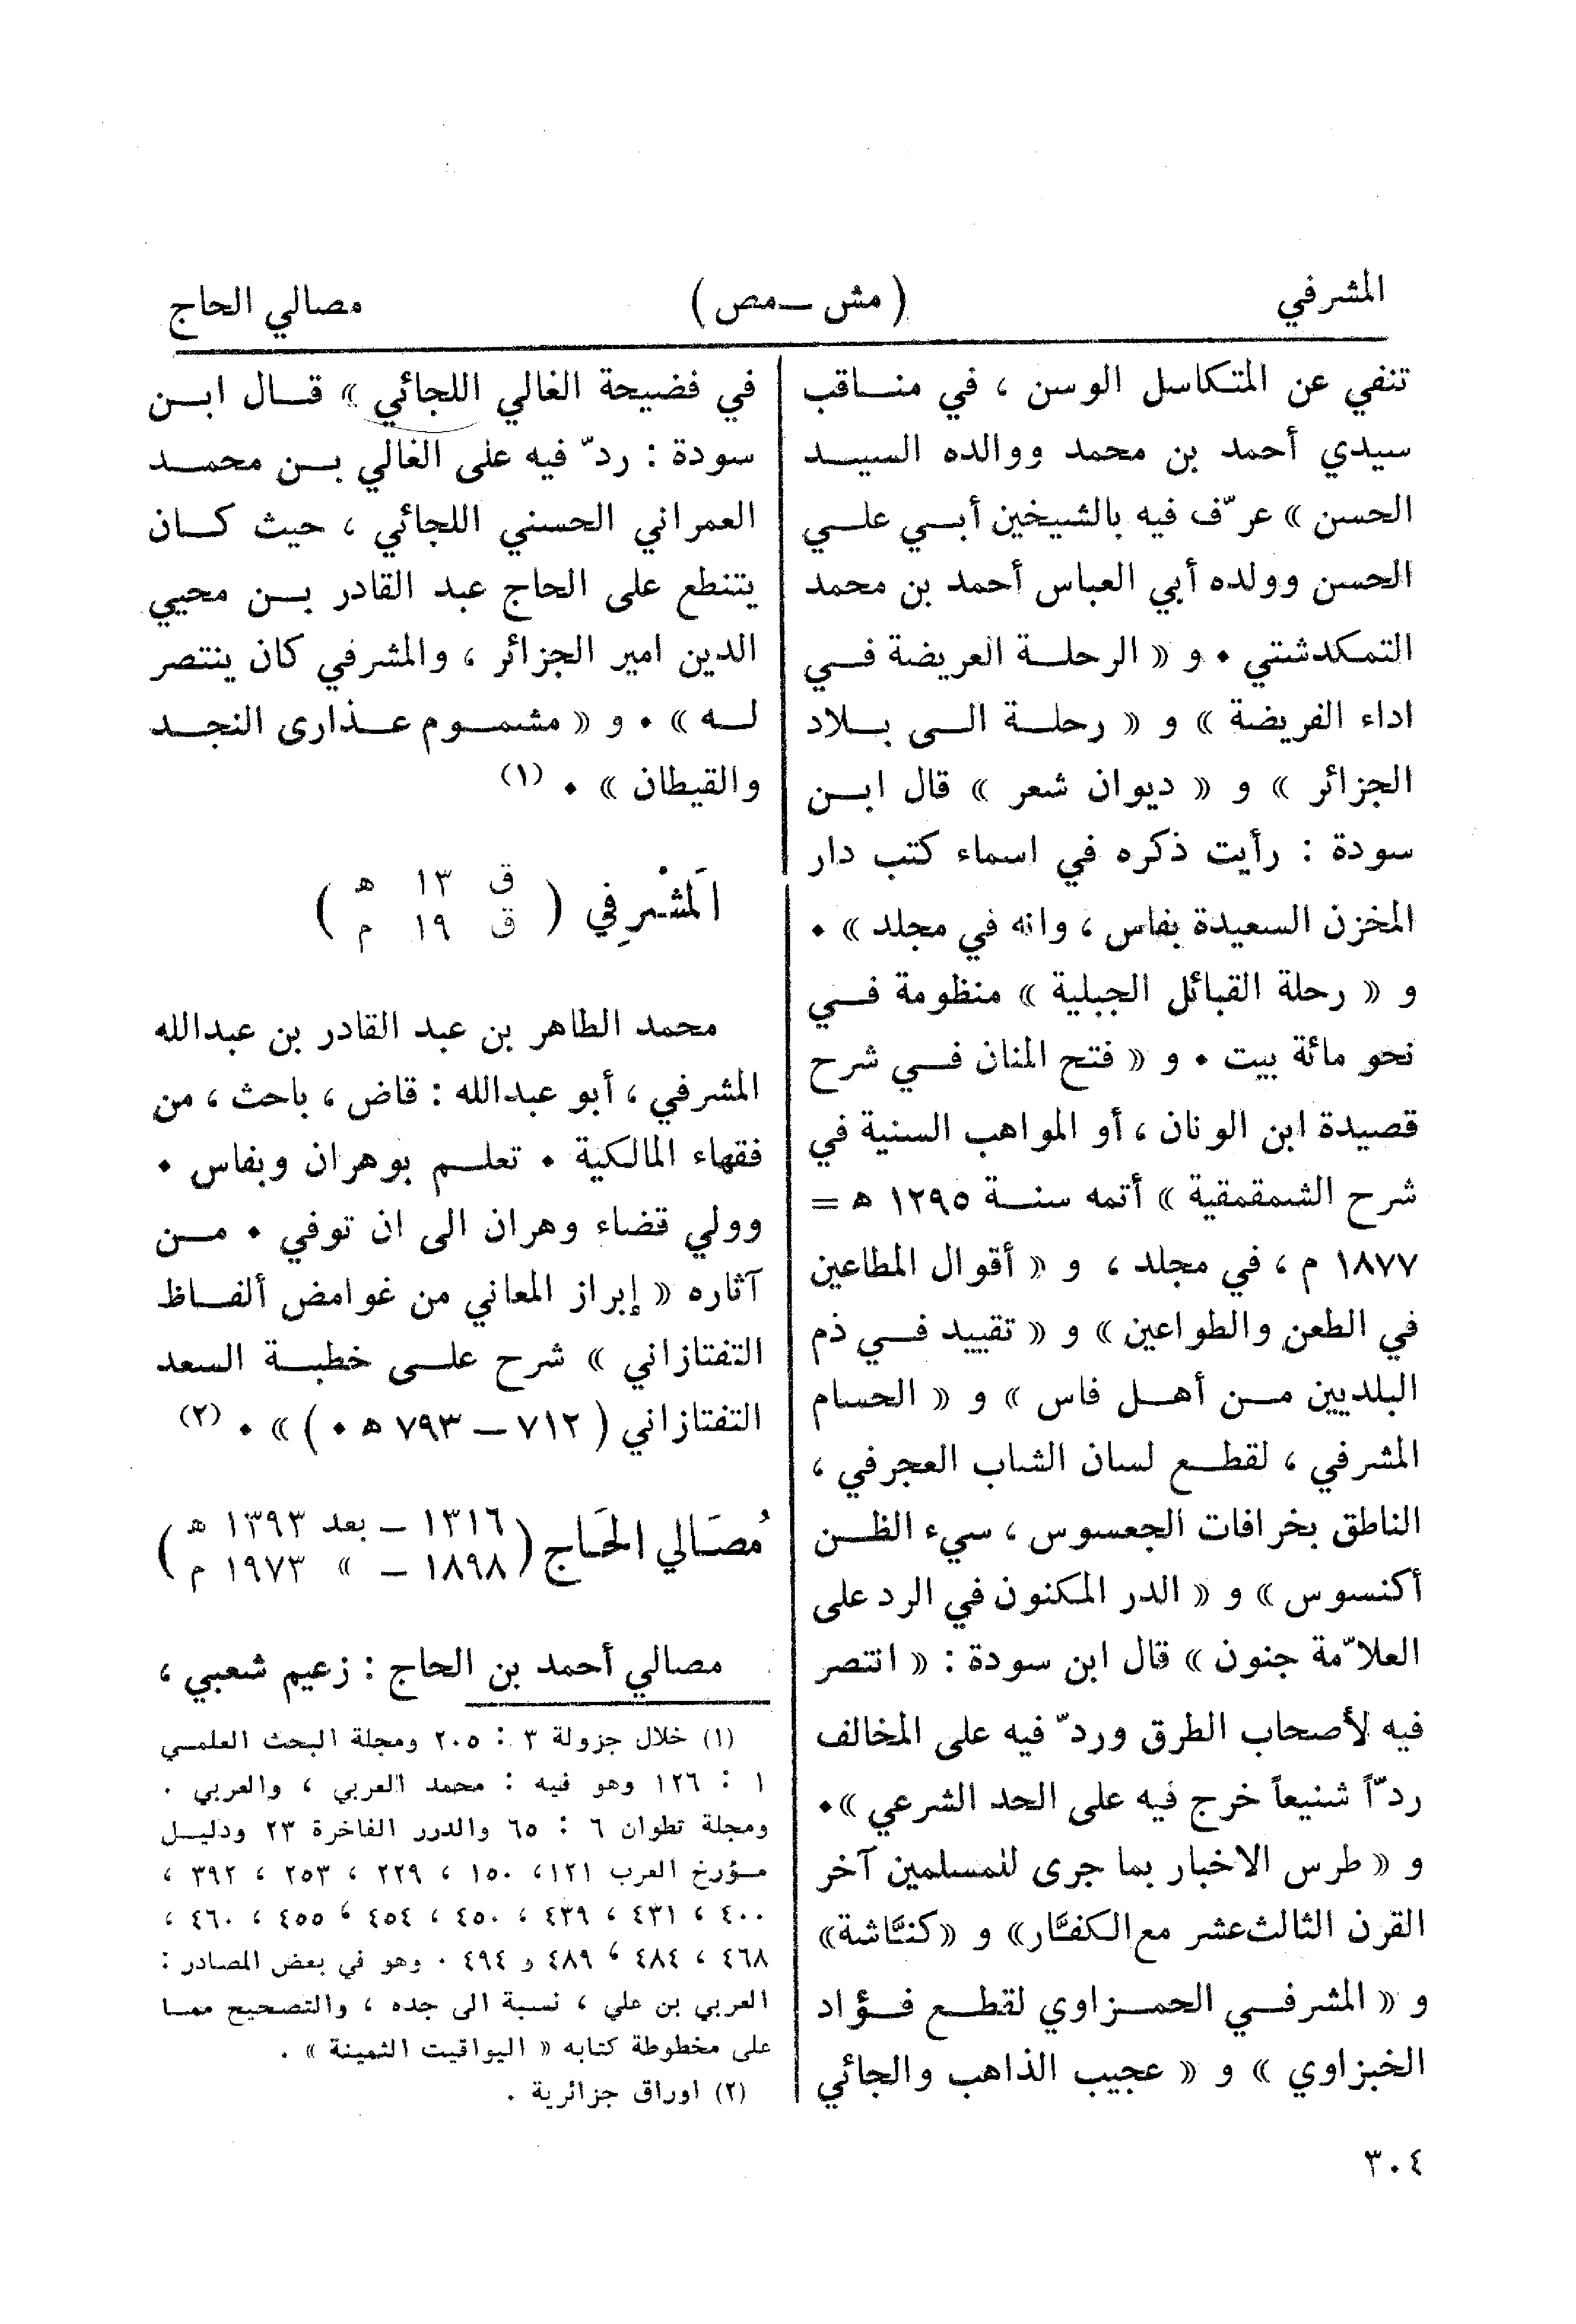 المشرفي
( مش – مص )
مصالي الحاج
تنفي عن المتكاسل الوسن ، في منــاقب
سيدي أحمد بن محمد ووالده السيــد
الحسن » عرّف فيه بالشيخين أبــي علــي
الحسن وولده أبي العباس أحمد بن محمد
التمكدشتي . و « الرحلــة العريضة فــي
اداء الفريضة » و « رحلــة الــى بــلاد
الجزائر » و « ديوان شعر » قال ابــن
سودة : رأيت ذكره في اسماء كتب دار
المخزن السعيدة بفاس ، وانه في مجلد » .
و « رحلة القبائل الجبلية » منظومة فــي
نحو مائة بيت . و « فتح المنان فــي شرح
قصيدة ابن الونان ، أو المواهب السنية في
شرح الشمقمقية » أتمه سنــة ١٢٩٥ هـ =
١٨٧٧ م ، في مجلد ، و « أقوال المطاعين
في الطعن والطواعين » و « تقييد فــي ذم
البلديين مــن أهــل فاس » و « الحسام
المشرفي ، لقطــع لسان الشاب العجرفي ،
الناطق بخرافات الجعسوس ، سيء الظــن
أكنسوس » و « الدر المكنون في الرد على
العلاّمة جنون » قال ابن سودة : « انتصر
فيه لأصحاب الطرق وردّ فيه على المخالف
ردّاً شنيعاً خرج فيه على الحد الشرعي » .
و « طرس الاخبار بما جرى للمسلمين آخر
القرن الثالث عشر مع الكفّار » و « كنّاشة »
و « المشرفــي الحمــزاوي لقطــع فــؤاد
الخبزاوي » و « عجيب الذاهب والجائي
في فضيحة الغالي اللجائي » قــال ابــن
سودة : ردّ فيه على الغالي بــن محمــد
العمراني الحسني اللجائي ، حيث كــان
يتنطع على الحاج عبد القادر بــن محيي
الدين امير الجزائر ، والمشرفي كان ينتصر
لــه » . و « مشمــوم عــذارى النجــد
والقيطان » . (١)
المَشْرِفِي ( ق ١٣ هـ
ق ١٩ م )
محمد الطاهر بن عبد القادر بن عبدالله
المشرفي ، أبو عبدالله : قاض ، باحث ، من
فقهاء المالكية . تعلــم بوهران وبفاس .
وولي قضاء وهران الى ان توفي . مــن
آثاره « إبراز المعاني من غوامض ألفــاظ
التفتازاني » شرح علــى خطبــة السعد
التفتازاني ( ٧١٢ – ٧٩٣ هـ . ) » . (٢)
مُصَالي الحَاج ( ١٣١٦ – بعد ١٣٩٣ هـ
١٨٩٨ – » ١٩٧٣ م )
مصالي أحمد بن الحاج : زعيم شعبي ،
(١) خلال جزولة ٣ : ٢٠٥ ومجلة البحث العلمــي
١ : ١٢٦ وهو فيه : محمد العربي ، والعربي .
ومجلة تطوان ٦ : ٦٥ والدرر الفاخرة ٢٣ ودليــل
مــؤرخ العرب ١٢١ ، ١٥٠ ، ٢٢٩ ، ٢٥٣ ، ٣٩٢ ،
٤٠٠ ، ٤٣١ ، ٤٣٩ ، ٤٥٠ ، ٤٥٤ ، ٤٥٥ ، ٤٦٠ ،
٤٦٨ ، ٤٨٤ ، ٤٨٩ و ٤٩٤ . وهو في بعض المصادر :
العربي بن علي ، نسبة الى جده ، والتصحيح ممــا
على مخطوطة كتابه « اليواقيت الثمينة » .
(٢) اوراق جزائرية .
٣٠٤